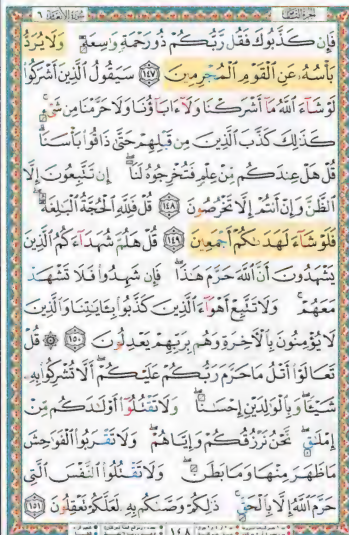 الجزء الثامن سورة الأنعام ٦
فَإِن كَذَّبُوكَ فَقُل رَّبُّكُمْ ذُو رَحْمَةٍ وَٰسِعَةٍ وَلَا يُرَدُّ
بَأْسُهُۥ عَنِ ٱلْقَوْمِ ٱلْمُجْرِمِينَ ١٤٧ سَيَقُولُ ٱلَّذِينَ أَشْرَكُوا۟
لَوْ شَآءَ ٱللَّهُ مَآ أَشْرَكْنَا وَلَآ ءَابَآؤُنَا وَلَا حَرَّمْنَا مِن شَىْءٍ
كَذَٰلِكَ كَذَّبَ ٱلَّذِينَ مِن قَبْلِهِمْ حَتَّىٰ ذَاقُوا۟ بَأْسَنَا
قُلْ هَلْ عِندَكُم مِّنْ عِلْمٍ فَتُخْرِجُوهُ لَنَآ إِن تَتَّبِعُونَ إِلَّا
ٱلظَّنَّ وَإِنْ أَنتُمْ إِلَّا تَخْرُصُونَ ١٤٨ قُلْ فَلِلَّهِ ٱلْحُجَّةُ ٱلْبَٰلِغَةُ
فَلَوْ شَآءَ لَهَدَىٰكُمْ أَجْمَعِينَ ١٤٩ قُلْ هَلُمَّ شُهَدَآءَكُمُ ٱلَّذِينَ
يَشْهَدُونَ أَنَّ ٱللَّهَ حَرَّمَ هَٰذَا فَإِن شَهِدُوا۟ فَلَا تَشْهَدْ
مَعَهُمْ وَلَا تَتَّبِعْ أَهْوَآءَ ٱلَّذِينَ كَذَّبُوا۟ بِـَٔايَٰتِنَا وَٱلَّذِينَ
لَا يُؤْمِنُونَ بِٱلْـَٔاخِرَةِ وَهُم بِرَبِّهِمْ يَعْدِلُونَ ١٥٠ ۞ قُلْ
تَعَالَوْا۟ أَتْلُ مَا حَرَّمَ رَبُّكُمْ عَلَيْكُمْ أَلَّا تُشْرِكُوا۟ بِهِۦ
شَيْـًٔا وَبِٱلْوَٰلِدَيْنِ إِحْسَٰنًا وَلَا تَقْتُلُوٓا۟ أَوْلَٰدَكُم مِّنْ
إِمْلَٰقٍ نَّحْنُ نَرْزُقُكُمْ وَإِيَّاهُمْ وَلَا تَقْرَبُوا۟ ٱلْفَوَٰحِشَ
مَا ظَهَرَ مِنْهَا وَمَا بَطَنَ وَلَا تَقْتُلُوا۟ ٱلنَّفْسَ ٱلَّتِى
حَرَّمَ ٱللَّهُ إِلَّا بِٱلْحَقِّ ذَٰلِكُمْ وَصَّىٰكُم بِهِۦ لَعَلَّكُمْ تَعْقِلُونَ ١٥١
١٤٨